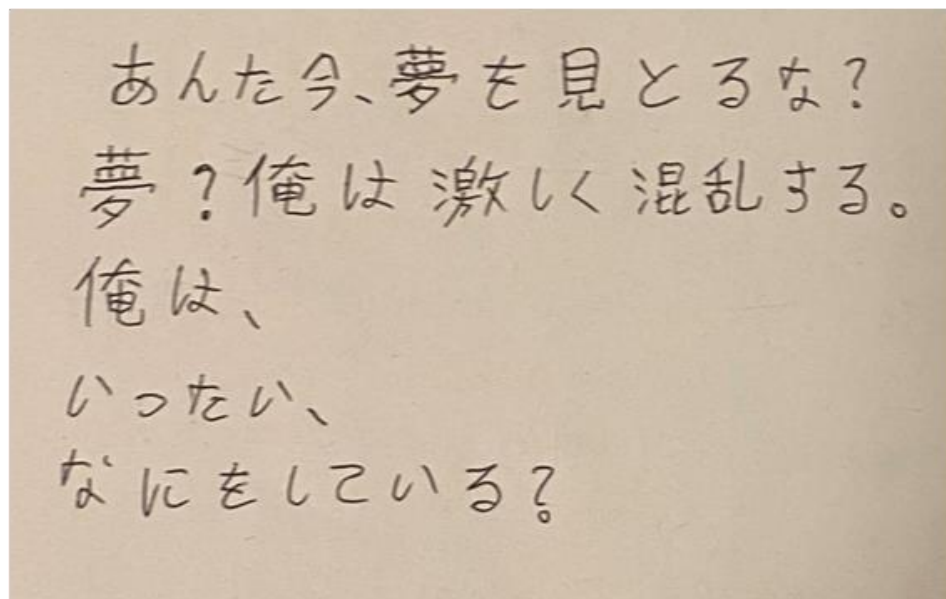 あんた今、夢を見とるな?
夢?俺は激しく混乱する。
俺は、
いったい、
なにをしている?